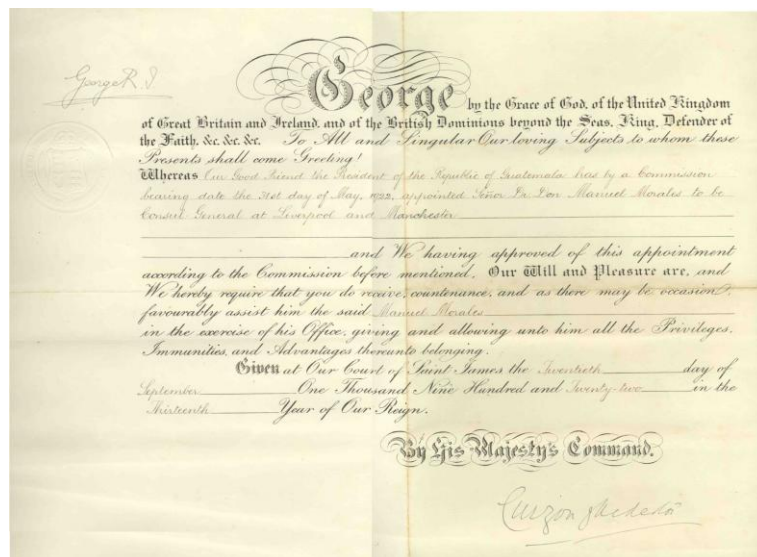 George R. I
George by the Grace of God, of the United Kingdom
of Great Britain and Ireland, and of the British Dominions beyond the Seas, King, Defender of
the Faith, &c. &c. &c. To All and Singular Our loving Subjects to whom these
Presents shall come Greeting!
Whereas Our Good Friend the President of the Republic of Guatemala has by a Commission
bearing date the 31st day of May, 1922, appointed Señor Dr Don Manuel Morales to be
Consul General at Liverpool and Manchester
and We having approved of this appointment
according to the Commission before mentioned, Our Will and Pleasure are, and
We hereby require that you do receive, countenance, and as there may be occasion,
favourably assist him the said Manuel Morales
in the exercise of his Office, giving and allowing unto him all the Privileges,
Immunities, and Advantages thereunto belonging.
Given at Our Court of Saint James the Twentieth day of
September One Thousand Nine Hundred and Twenty-two in the
Thirteenth Year of Our Reign.
By His Majesty's Command.
Curzon of Kedleston